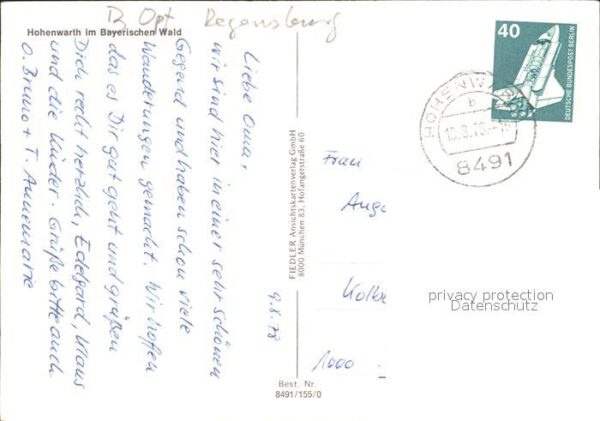 B Opf Regensburg
Hohenwarth im Bayerischen Wald
9.8.78
Liebe Oma,
wir sind hier in einer sehr schönen
Gegend und haben schon viele
Wanderungen gemacht. Wir hoffen
das es Dir gut geht und grüßen
Dich recht herzlich, Edelgard, Klaus
und die Kinder. Grüße bitte auch
O. Bruno + T. Annemarie
FIEDLER Ansichtskartenverlag GmbH
8000 München 83, Hofangerstraße 60
Best. Nr.
8491/155/0
40
DEUTSCHE BUNDESPOST BERLIN
HOHENW
b
8491
Frau
Kolbe
1000
privacy protection
Datenschutz